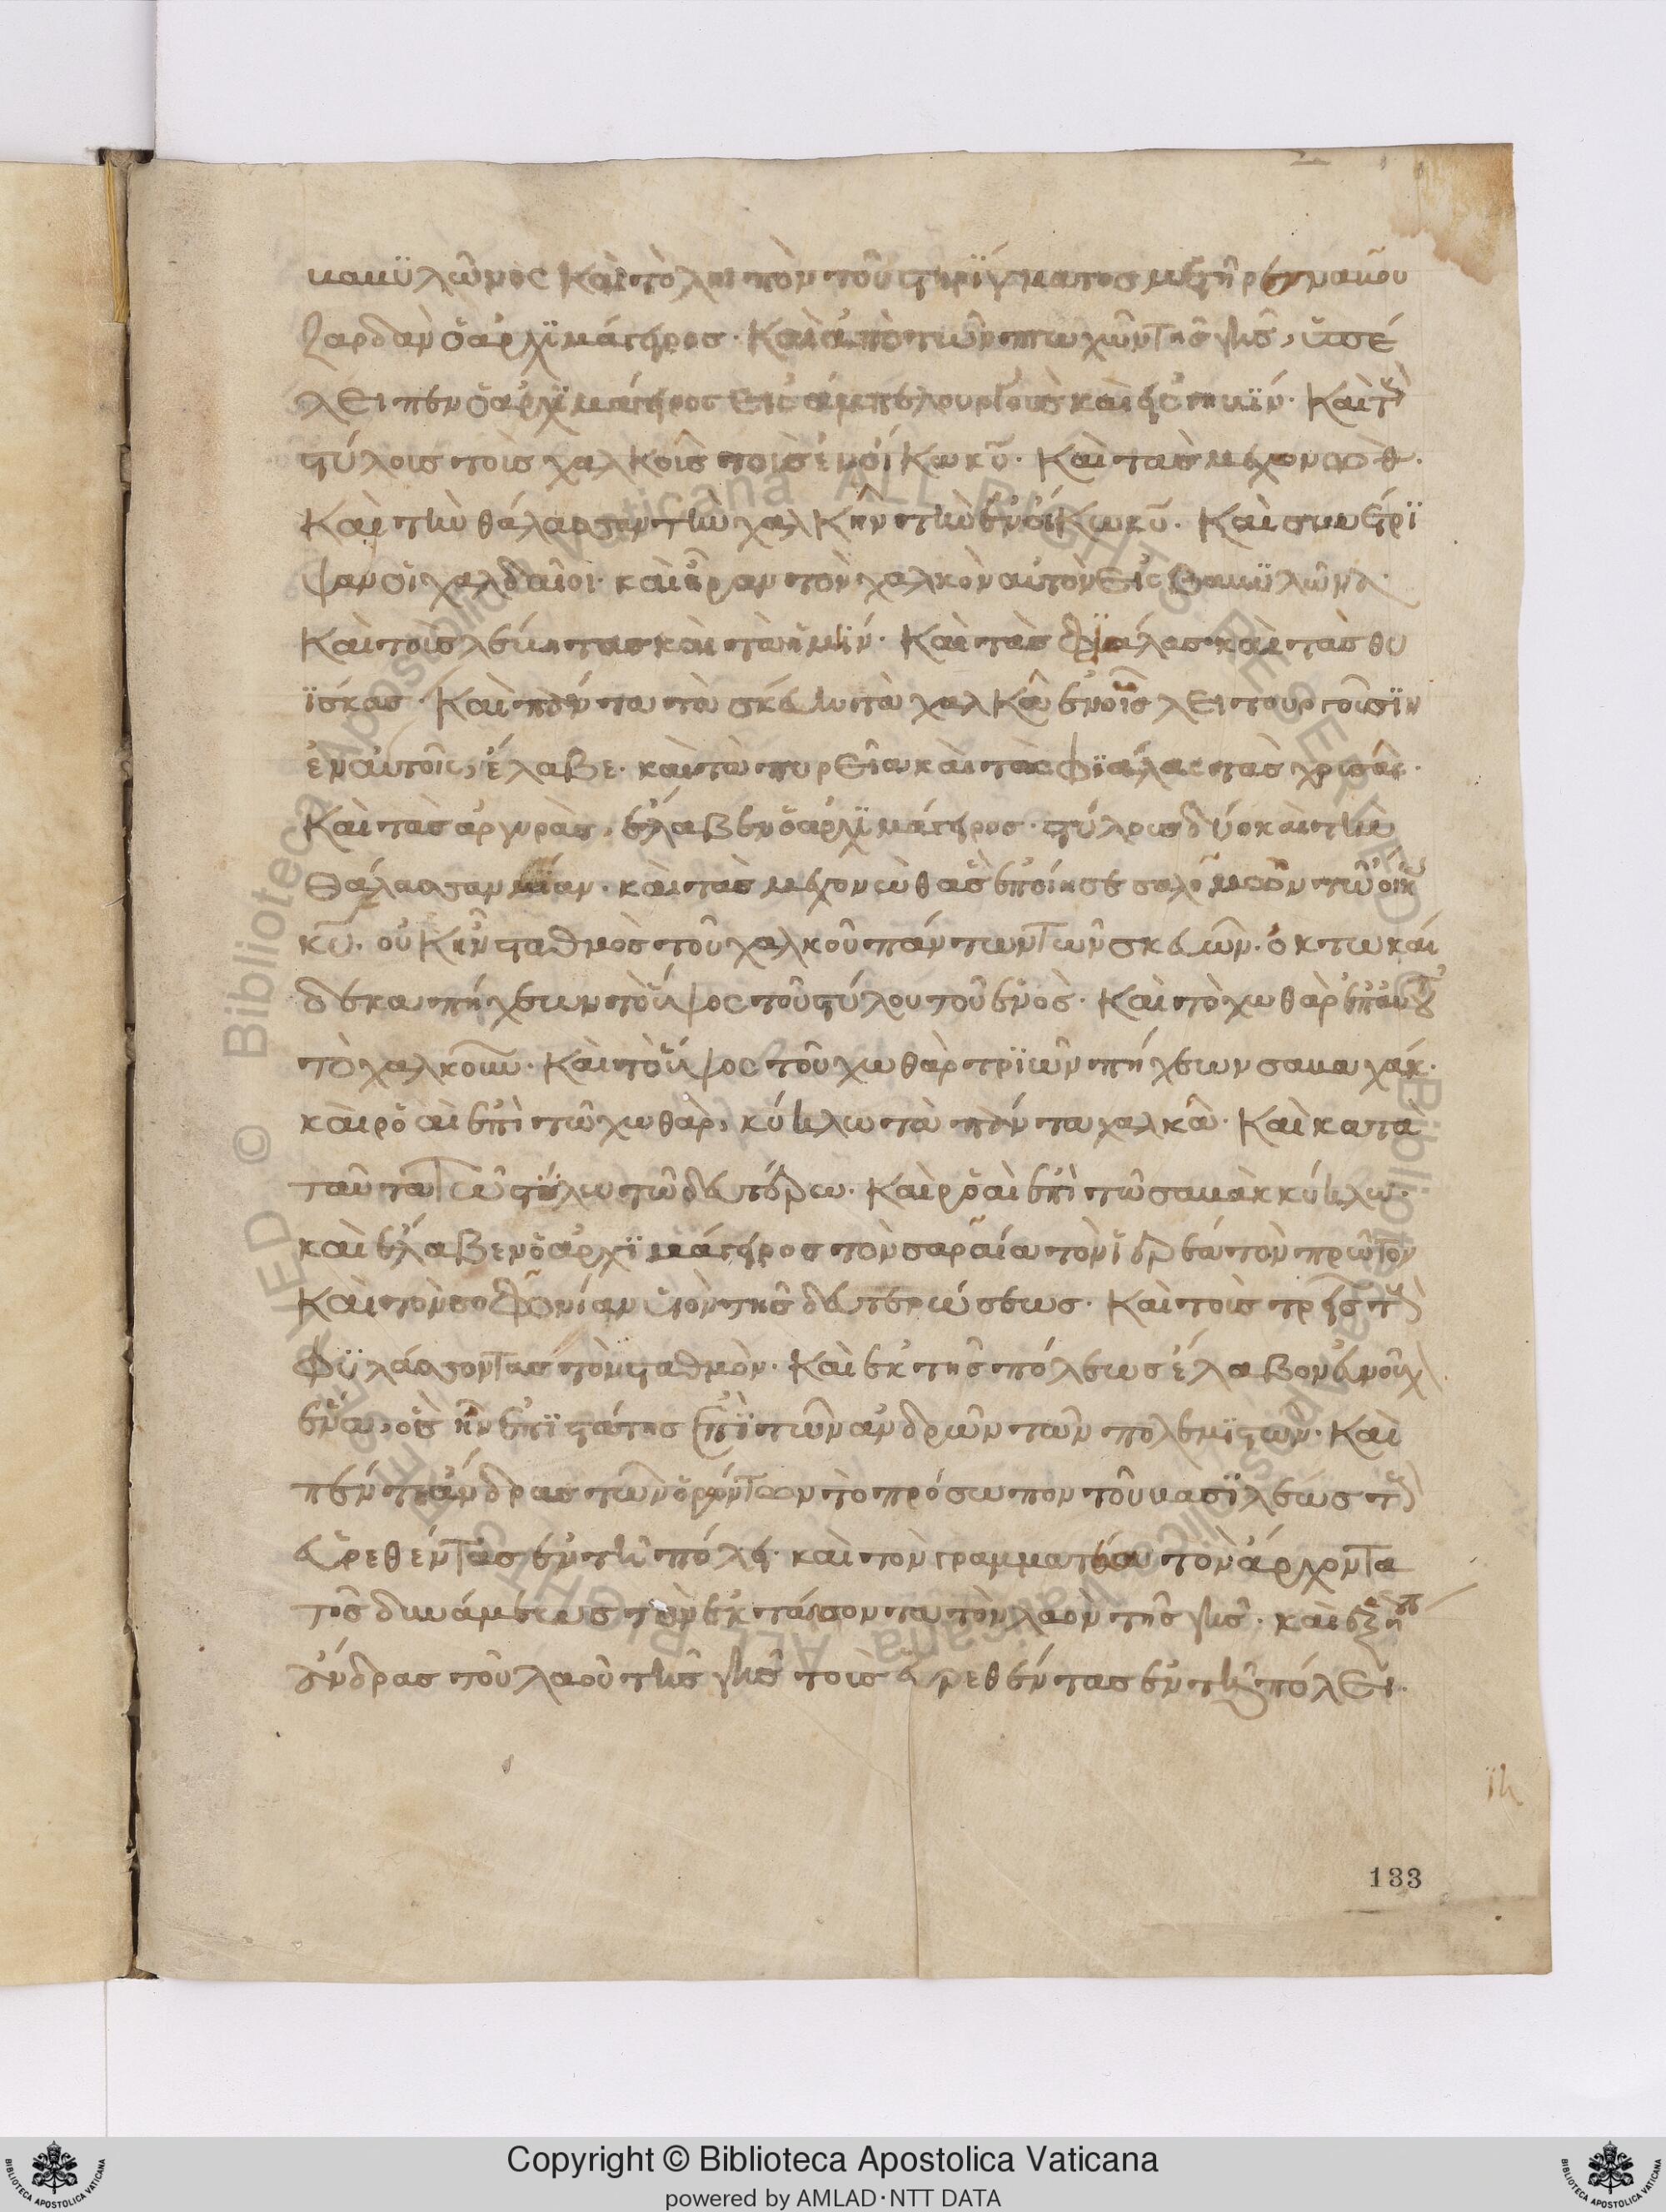 βαβυλῶνος καὶ τὸ λοιπὸν τοῦ στηρίγματος μετῆρε ναβου
ζαρδὰν ὁ ἀρχιμάγειρος· καὶ ἀπὸ τῶν πτωχῶν τῆς γῆς, ὑπέ
λειπεν ὁ ἀρχιμάγειρος εἰς ἀμπελουργοὺς καὶ εἰς γηβίν· καὶ τοὺς
στύλους τοὺς χαλκοῦς τοὺς ἐν οἴκω κυ· καὶ τὰς μεχονώθ·
καὶ τὴν θάλασσαν τὴν χαλκῆν τὴν ἐν οἴκω κυ· καὶ συνέτρι
ψαν οἱ χαλδαῖοι· καὶ ἦραν τὸν χαλκὸν αὐτὸν εἰς βαβυλῶνα·
καὶ τοὺς λέβητας καὶ τὰ ἰαμίν· καὶ τὰς φιάλας καὶ τὰς θυ
ΐσκας· καὶ πάντα τὰ σκεύη τὰ χαλκᾶ ἐν οἷς λειτουργοῦσιν
ἐν αὐτοῖς, ἔλαβε· καὶ τὰ πυρεῖα καὶ τὰς φιάλας τὰς χρυσᾶς·
καὶ τὰς ἀργυρᾶς, ἔλαβεν ὁ ἀρχιμάγειρος· στύλους δύο καὶ τὴν
θάλασσαν μίαν· καὶ τὰς μεχονὼθ ἃς ἐποίησε σολομῶν τῷ οἴκω
κυ· οὐκ ἦν σταθμὸς τοῦ χαλκοῦ πάντων τῶν σκευῶν· ὀκτωκαί
δεκα πήχεων τὸ ὕψος τοῦ στύλου τοῦ ἑνός· καὶ τὸ χωθὰρ ἐπ' αὐτοῦ
τὸ χαλκοῦν· καὶ τὸ ὕψος τοῦ χωθὰρ τριῶν πήχεων σαβαχάκ·
καὶ ῥοαὶ ἐπὶ τῷ χωθὰρ, κύκλω τὰ πάντα χαλκᾶ· καὶ κατὰ
ταῦτα τῷ στύλω τῷ δευτέρω· καὶ ῥοαὶ ἐπὶ τῷ σαβὰκ κύκλω·
καὶ ἔλαβεν ὁ ἀρχιμάγειρος τὸν σαραΐα τὸν ἱερέα τὸν πρῶτον
καὶ τὸν σοφονίαν υἱὸν τῆς δευτερώσεως· καὶ τοὺς τρεῖς τοὺς
φυλάσσοντας τὸν σταθμόν· καὶ ἐκ τῆς πόλεως ἔλαβον εὐνοῦχον
ἕνα, ὃς ἦν ἐπιστάτης ἐπὶ τῶν ἀνδρῶν τῶν πολεμιστῶν· καὶ
πέντε ἄνδρας τῶν ὁρώντων τὸ πρόσωπον τοῦ βασιλέως τοὺς
εὑρεθέντας ἐν τῇ πόλει· καὶ τὸν γραμματέα τὸν ἄρχοντα
τῆς δυνάμεως τὸν ἐκτάσσοντα τὸν λαὸν τῆς γῆς· καὶ ἑξήκοντα
ἄνδρας τοῦ λαοῦ τῆς γῆς τοὺς εὑρεθέντας ἐν τῇ πόλει·
133
Copyright © Biblioteca Apostolica Vaticana
powered by AMLAD·NTT DATA